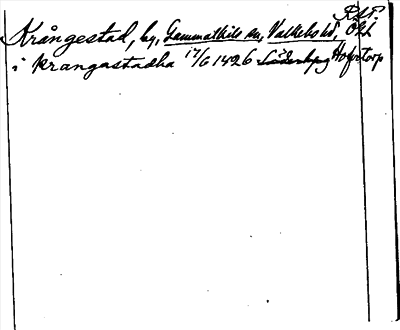 Krångestad, by, Gammalkils sn, Valkebo hd, Ögl
i krangastadha 17/6 1426 Söderbyg Hofetorp